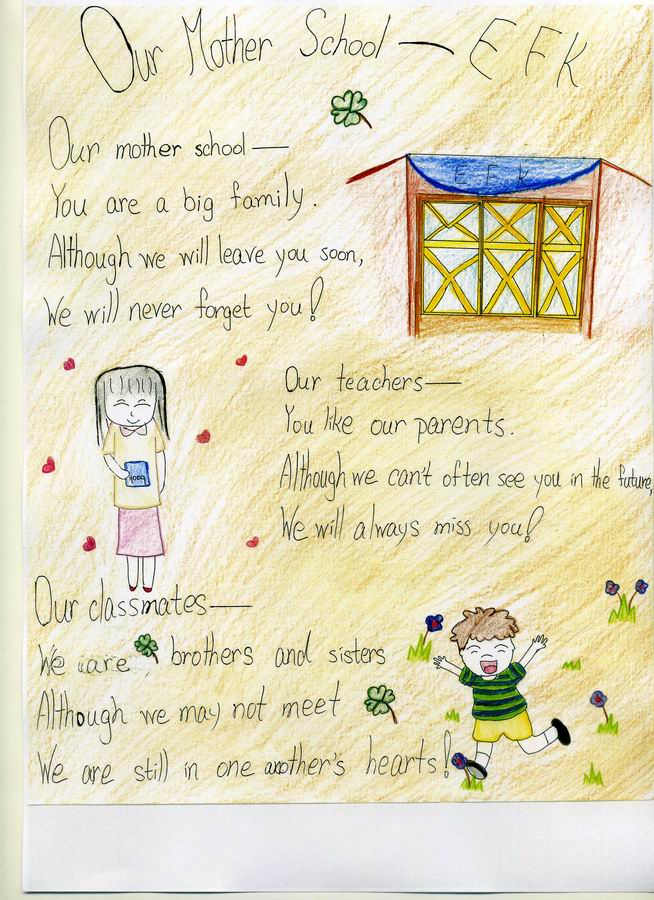 Our Mother School — EFK
Our mother school —
You are a big family.
Although we will leave you soon,
We will never forget you!
EFK
Our teachers —
You like our parents.
Although we can't often see you in the future,
We will always miss you!
BOOK
Our classmates —
We are, brothers and sisters
Although we may not meet
We are still in one another's hearts!